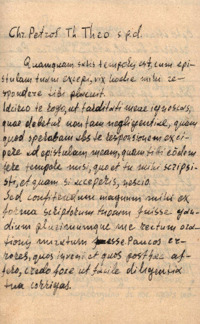 Chr. Petzof Th. Theo s.p.d.
Quamquam satis temporis est, cum epi-
stulam tuam excepi, vix hodie mihi re-
spondere tibi placuit.
Idcirco te rogo, ut tarditati meae ignoscas,
quae debetur non tam neglegentiae, quam
quod sperabam abs te responsionem exci-
pere ad epistulam meam, quam tibi eodem
fere tempore misi, quo et tu mihi scripsi-
sti, et quam si acceperis, nescio.
Sed confitendum magnum mihi ex
forma scriptorum tuorum fuisse gau-
dium plerumque me rectum ora-
tionis mixtum esse Paucos er-
rores, quos inveni et quos post hac af-
fero, credo fore ut facile diligentia
tua corrigas.